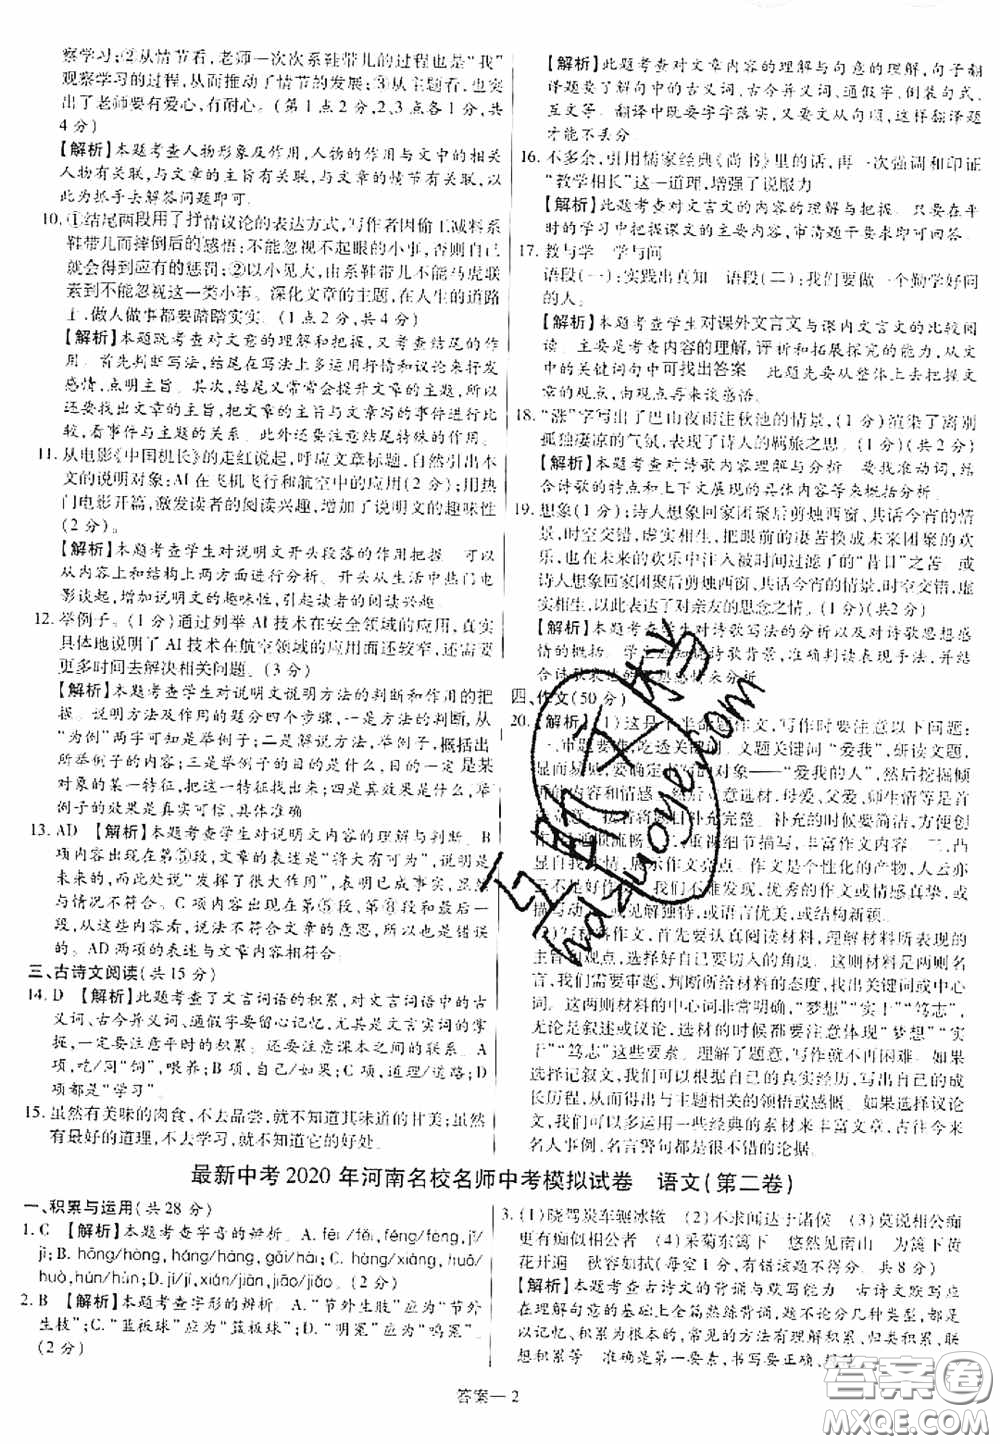 察学习;②从情节看,老师一次次系鞋带儿的过程也是“我”
观察学习的过程,从而推动了情节的发展;③从主题看,也突
出了老师要有爱心,有耐心。(第1点2分,2,3点各1分,共
4分)
【解析】本题考查人物形象及作用,人物的作用与文中的相关
人物有关联,与文章的主题有关联,与文章的情节有关联,以
此为抓手去解答问题即可.
10.①结尾两段用了抒情议论的表达方式,写作者因偷工减料系
鞋带儿而摔倒后的感悟:不能忽视不起眼的小事,否则自己
就会得到应有的惩罚;②以小见大,由系鞋带儿不能马虎联
系到不能忽视这一类小事。深化文章的主题,在人生的道路
上,做人做事都要踏踏实实.(1点2分,共4分)
【解析】本题既考查对文意的理解和把握,又考查结尾的作
用。首先判断写法,结尾在写法上多运用抒情和议论来抒发
感情,点明主旨。其次,结尾又常常会提升文章的主题,所以
还要找出文章的主旨,把文章的主旨与文章写的事件进行比
较,看事件与主题的关系。此外还要注意结尾特殊的作用。
11.从电影《中国机长》的走红说起,呼应文章标题,自然引出本
文的说明对象:AI在飞机飞行和航空中的应用(2分);用热
门电影开篇,激发读者的阅读兴趣,增强了说明文的趣味性
(2分)。
【解析】本题考查学生对说明文开头段落的作用把握。可以
从内容上和结构上两方面进行分析。开头从生活中热门电
影谈起,增强说明文的趣味性,引起读者的阅读兴趣。
12.举例子。(1分)通过列举AI技术在安全领域的应用,真实
具体地说明了AI技术在航空领域的应用面还较窄,还需要
更多时间去解决相关问题。(3分)
【解析】本题考查学生对说明文说明方法的判断和作用的把
握。说明方法及作用的题分四个步骤,一是方法的判断,从
“为例”两字可知是举例子;二是解说方法,举例子,概括出所
举例子的内容;三是写作目的,举例子的目的一定是某
对象的某一特征,把这一特征找出来;四是其效果是什么,举
例子的效果是真实可信,具体准确.
13.AD 【解析】本题考查学生对说明文内容的理解与判断。B
项内容出现在第⑤段,文章的表述是“将大有可为”,说明是
未来的,而此题说“发挥了很大作用”,表明已成事实,虽然
与情况不符合。C项内容出现在第⑤段、第⑧段和最后一段,
从这些内容看,说法不符合文章的意思,所以也是错误
的。AD两项的表述与文章内容相符合.
三、古诗文阅读(共15分)
14.D 【解析】此题考查了文言词语的积累,对文言词语中的古
义词、古今异义词、通假字要留心记忆,尤其是文言实词的掌
握,一定要注意平时的积累;还要注意课本之间的联系。A
项,吃/同“饲”,喂养;B项,它的/自己的;C项,道理/道路;D
项都是“学习”.
15.虽然有美味的肉食,不去品尝,就不知道其味道的甘美;虽然
有最好的道理,不去学习,就不知道它的好处.
【解析】此题考查对文章内容的理解与句意的理解,句子翻
译题要了解句中的古义词、古今异义词、通假字、倒装句式、
互文等。翻译中既要落实字词,又要文从句顺,这样翻译题
才能不丢分.
16.不多余,引用儒家经典《尚书》里的话,再一次强调和印证
“教学相长”这一道理,增强了说服力.
【解析】此题考查对文言文的内容的理解与把握。只要在平
时的学习中把握课文的主要内容,审清题干要求即可回答。
17.教与学 学与问
语段(一):实践出真知 语段(二):我们要做一个勤学好问
的人。
【解析】本题考查学生对课外文言文与课内文言文的比较阅
读。主要是考查内容的理解,评析和拓展探究的能力,从文
中的关键词句中可找出答案.此题要从整体上去把握文
章,由观点再来谈感悟。
18.“涨”字写出了巴山夜雨注秋池的情景,(1分)渲染了离别
孤独凄凉的气氛,表现了诗人的羁旅之思。(1分)(共2分)
【解析】本题考查对诗歌内容理解与分析.要找准动词,结
合诗歌的特点和上下文展现的具体内容来体会即可。
19.想象(1分);诗人想象回家团聚后剪烛西窗,共话今宵的情
景,时空交错,虚实相生,把眼前的凄苦换成未来团聚的欢
乐,也在未来的欢乐中注入被时间过滤了的“昔日”之苦.或
诗人想象回家团聚后剪烛西窗,共话今宵的情景,时空交错,
虚实相生,以此表达了对亲友的思念之情。(1分)(共2分)
【解析】本题考查学生对诗歌写法的分析以及对诗歌思想感
情的概括。学生要理解诗歌背景、准确判读表现手法,并结
合诗歌具体内容来赏析即可。
四、作文(50分)
20.【解析】(1)这是一个半命题作文,写作时要注意以下问题:
一、审题要准,吃透关键词。文题关键词“爱我”,研读文题,
显而易见,要确定书写的对象——“爱我的人”,然后挖掘倾
的内容和情感,然后立意选材,母爱、父爱、师生情等是首
立意。接着将题目补充完整。补充的时候要简洁,方便创
作,语顺流畅。二、重视细节描写,丰富作文内容.三、凸
显自我风格,展示作文亮点。作文是个性化的产物,人云亦
云,优秀的作文或情感真挚,或
描写动人,或见解独特,或语言优美,或结构新颖。
(2)写材料作文,首先要认真阅读材料,理解材料所表现的
主旨和观点,尽快找出自己要切入的角度。这两则材料作
文,我们需要审题,判断所给的材料,找出关键词或中心
词。这两则材料的中心词非常明确,“梦想”“实干”“笃志”,
无论是叙述或议论,选材的时候都要注意体现“梦想”“实
干”“笃志”这些要素。理解了题意,写作就不再困难。如果
选择记叙文,我们可以根据自己的真实经历,写出自己的成
长历程,从而得出与主题相关的领悟或感慨。如果选择议论
文,我们可以用一些经典的素材来丰富文章,从古往今来的
名人事例,名言警句都是很不错的论据。
最新中考2020年河南名校名师中考模拟试卷 语文(第二卷)
一、积累与运用(共28分)
1.C 【解析】本题考查字音的辨析。A.fěi/fēi,féng/fèng,jī/
jì;B.hōng/hòng,háng/hàng,gǎi/hài;C.xiáng/xiàng,huō/
huò,hún/hùn;D.jí/jī,xián/jiān,jiāo/jiǎo.(2分)
2.B 【解析】本题考查字形的辨析.A.“节外生肢”应为“节外
生枝”;C.“蓝板球”应为“篮板球”;D.“明冤”应为“鸣冤”.
(2分)
3.(1)晓驾炭车辗冰辙 (2)不求闻达于诸侯 (3)莫说相公痴
更有痴似相公者 (4)采菊东篱下 悠然见南山 为篱下荷
花开遍 秋容如拭(每空1分,有错误不得分。共8分)
【解析】本题考查古诗文的背诵与默写能力.古诗文默写应
在理解句意的基础上全篇熟练背诵,不论分几种类型,都要
以记忆、积累为根本的,常见的方法有理解积累、归类积累、联
想积累等.准确是第一要素,书写要正确,规范
答案—2
答案圈
MXQE.COM
百所文库
haizuoye.com